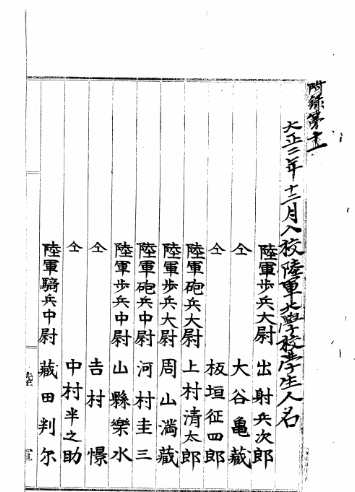 附録第十一
大正二年十二月入校陸軍大學校学生人名
陸軍歩兵大尉 出射兵次郎
仝 大谷亀藏
仝 板垣征四郎
陸軍砲兵大尉 上村清太郎
陸軍歩兵大尉 周山満藏
陸軍砲兵中尉 河村圭三
陸軍歩兵中尉 山縣樂水
仝 吉村憬
仝 中村半之助
陸軍騎兵中尉 藏田判尓
陸軍